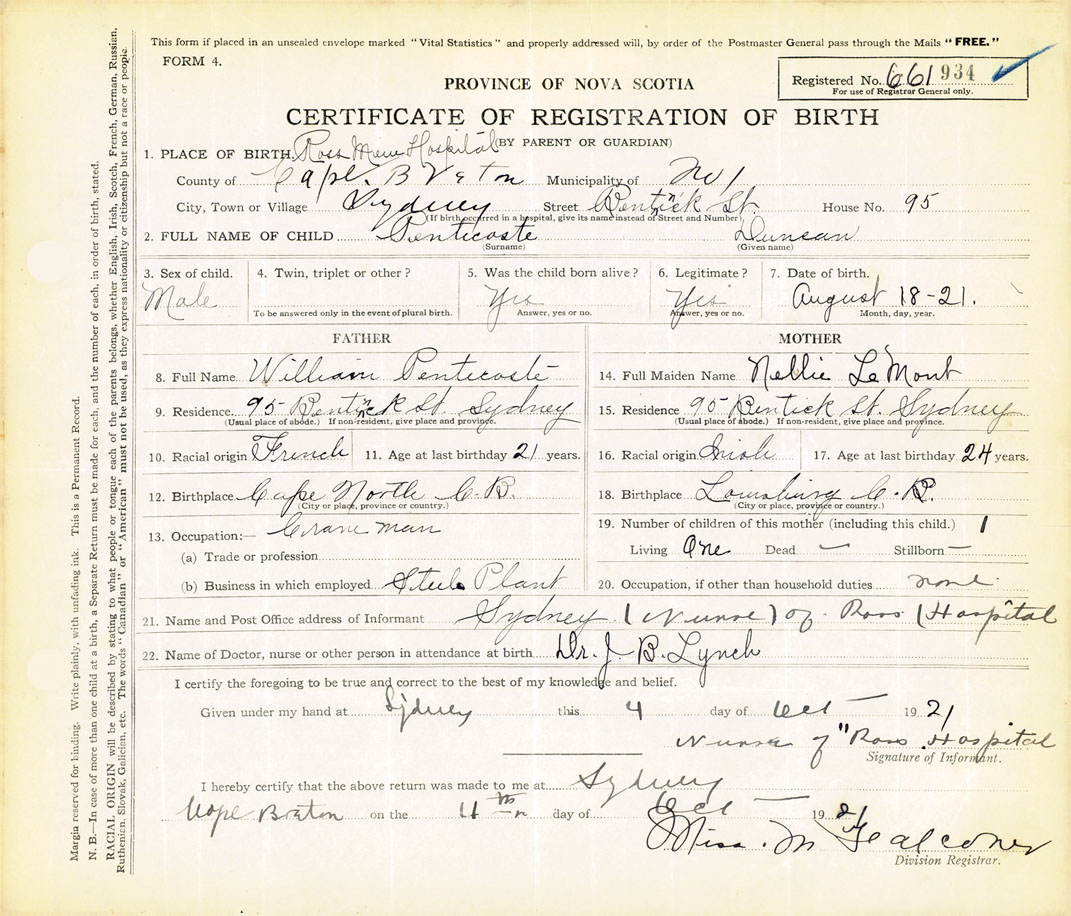 This form if placed in an unsealed envelope marked "Vital Statistics" and properly addressed will, by order of the Postmaster General pass through the Mails "FREE."
FORM 4.
Registered No. 661 934
For use of Registrar General only.
PROVINCE OF NOVA SCOTIA
CERTIFICATE OF REGISTRATION OF BIRTH
(BY PARENT OR GUARDIAN)
1. PLACE OF BIRTH. Ross Mem Hospital
County of Cape Breton Municipality of No 1
City, Town or Village Sydney Street Bentick St. House No. 95
(If birth occurred in a hospital, give its name instead of Street and Number)
2. FULL NAME OF CHILD Penticoste Duncan
(Surname) (Given name)
3. Sex of child. 4. Twin, triplet or other? 5. Was the child born alive? 6. Legitimate? 7. Date of birth.
Male Yes Yes August 18-21.
To be answered only in the event of plural birth. Answer, yes or no. Answer, yes or no. Month, day, year.
FATHER
8. Full Name William Penticoste
9. Residence 95 Bentick St. Sydney
(Usual place of abode.) If non-resident, give place and province.
10. Racial origin French 11. Age at last birthday 21 years.
12. Birthplace Cape North C.B.
(City or place, province or country.)
13. Occupation:— Crane man
(a) Trade or profession
(b) Business in which employed Steel Plant
MOTHER
14. Full Maiden Name Nellie LeMont
15. Residence 95 Bentick St. Sydney
(Usual place of abode.) If non-resident, give place and province.
16. Racial origin Irish 17. Age at last birthday 24 years.
18. Birthplace Louisburg C.B.
(City or place, province or country.)
19. Number of children of this mother (including this child.) 1
Living One Dead — Stillborn —
20. Occupation, if other than household duties none
21. Name and Post Office address of Informant Sydney (Nurse) of Ross (Hospital
22. Name of Doctor, nurse or other person in attendance at birth Dr. J. B. Lynch
I certify the foregoing to be true and correct to the best of my knowledge and belief.
Given under my hand at Sydney this 4 day of Oct 1921
Nurse of "Ross Hospital
Signature of Informant.
I hereby certify that the above return was made to me at Sydney
Cape Breton on the 4th day of Oct 1921
Miss. M Falconer
Division Registrar.
Margin reserved for binding. Write plainly, with unfading ink. This is a Permanent Record.
N. B.—In case of more than one child at a birth, a Separate Return must be made for each, and the number of each, in order of birth, stated.
RACIAL ORIGIN will be described by stating to what people or tongue each of the parents belongs, whether English, Irish, Scotch, French, German, Russian,
Ruthenian, Slovak, Galician, etc. The words "Canadian" or "American" must not be used, as they express nationality or citizenship but not a race or people.